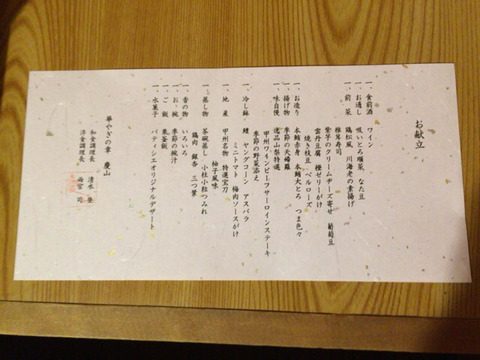 お献立
一、食前酒 ワイン
一、お通し 吸いとろ順菜 なた豆
一、前菜 鶏松風 川海老の素揚げ
椎茸寿司
紫芋のクリームチーズ寄せ 葡萄豆
雲丹豆腐 橙ゼリーがけ
焼き枝豆 ベルローズ
一、お造り 本鮪赤身 本鮪大とろ つま色々
一、揚げ物 季節の天婦羅
一、味自慢 逸品山梨特選
甲州ワインビーフサーロインステーキ
季節の野菜添え
一、冷し鉢 鰻 ヤングコーン アスパラ
ミニトマト 梅肉ソースがけ
一、地産 甲州名物 特選宝刀
柚子風味
一、蒸し物 茶碗蒸し 小柱小柱つみれ
鶏肉 銀杏 三つ葉
一、香の物 いろいろ
一、お椀 季節の椀汁
一、ご飯 栗釜飯
一、水菓子 パティシエオリジナルデザート
華やぎの章 慶山
和食調理長 清水
洋食調理長 司